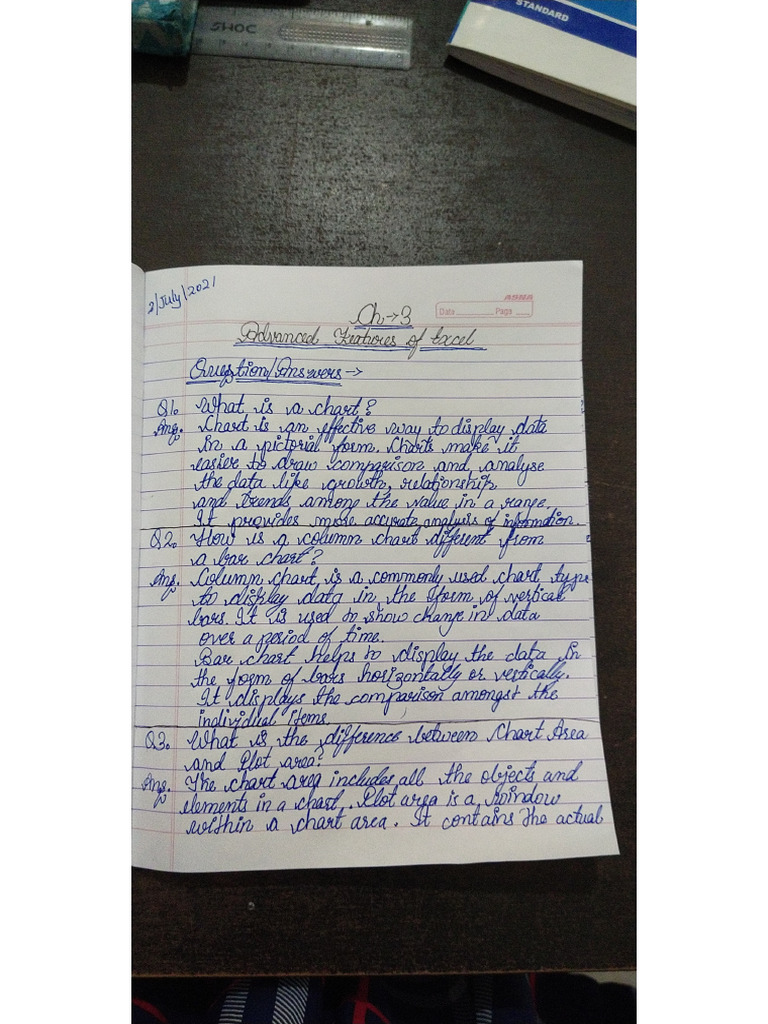 SHOC
STANDARD
2/July/2021
ASNA
Date Page
Ch→3
Advanced Features of Excel
Question/Answers→
Q1. What is a chart?
Ans. Chart is an effective way to display data
in a pictorial form. Charts make it
easier to draw comparison and analyse
the data like growth, relationship
and trends among the value in a range.
It provides more accurate analysis of information.
Q2. How is a column chart different from
a bar chart?
Ans. Column chart is a commonly used chart type
to display data in the form of vertical
bars. It is used to show change in data
over a period of time.
Bar chart helps to display the data in
the form of bars horizontally or vertically.
It displays the comparison amongst the
individual items.
Q3. What is the difference between Chart Area
and Plot area?
Ans. The chart area includes all the objects and
elements in a chart. Plot area is a window
within a chart area. It contains the actual